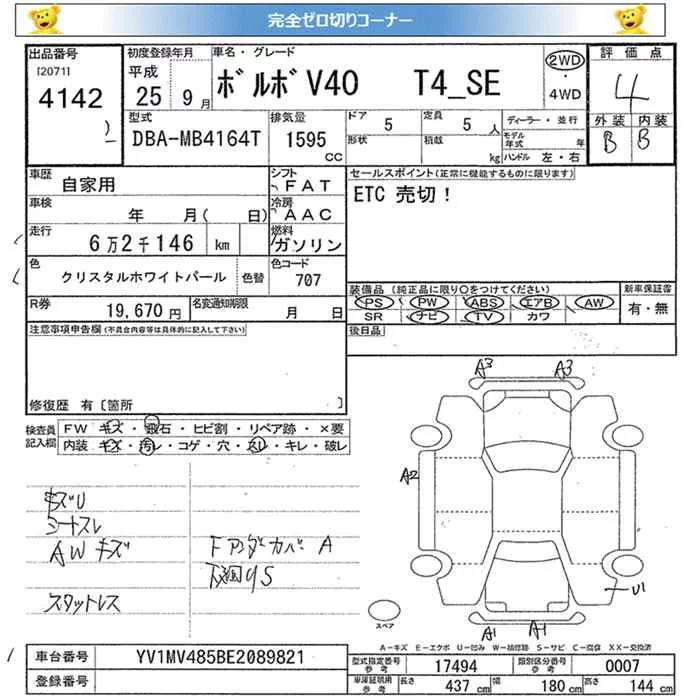 完全ゼロ切りコーナー
出品番号 初度登録年月 車名・グレード 評価点
[2071] 平成 ボルボ V40 T4_SE 2WD 4
4142 25 9月 ・ 4WD
型式 排気量 ドア 5 定員 5 人 ディーラー・並行 外装 内装
DBA-MB4164T 1595 cc 形状 積載 kg モデル年式 年 B B
ハンドル 左・右
車歴 自家用 シフト FAT セールスポイント(正常に機能するものに限ります)
車検 年 月( 日) 冷房 AAC ETC 売切!
走行 6万2千146 km 燃料 ガソリン
色 クリスタルホワイトパール 色替 色コード 707
R券 19,670円 名変通知期限 月 日
装備品 (純正品に限り○をつけてください) 新車保証書
PS PW ABS エアB AW 有・無
SR ナビ TV カワ
注意事項申告欄(不具合内容等は具体的に記入して下さい) 後日品
修復歴 有〔箇所 〕
検査員記入欄 FW キズ・飛石・ヒビ割・リペア跡・×要
内装 キズ・汚レ・コゲ・穴・スレ・キレ・破レ
A3 A3
A2
キズU
シートスレ
AWキズ ドアンダーカバーA
下廻りS
スタットレス
U1
スペア
A1 A1
A−キズ E−エクボ U−凹み W−補修跡 S−サビ C−腐蝕 XX−交換済
車台番号 YV1MV485BE2089821 型式指定番号参考 17494 類別区分番号参考 0007
登録番号 車庫証明用参考 長さ 437 cm 幅 180 cm 高さ 144 cm